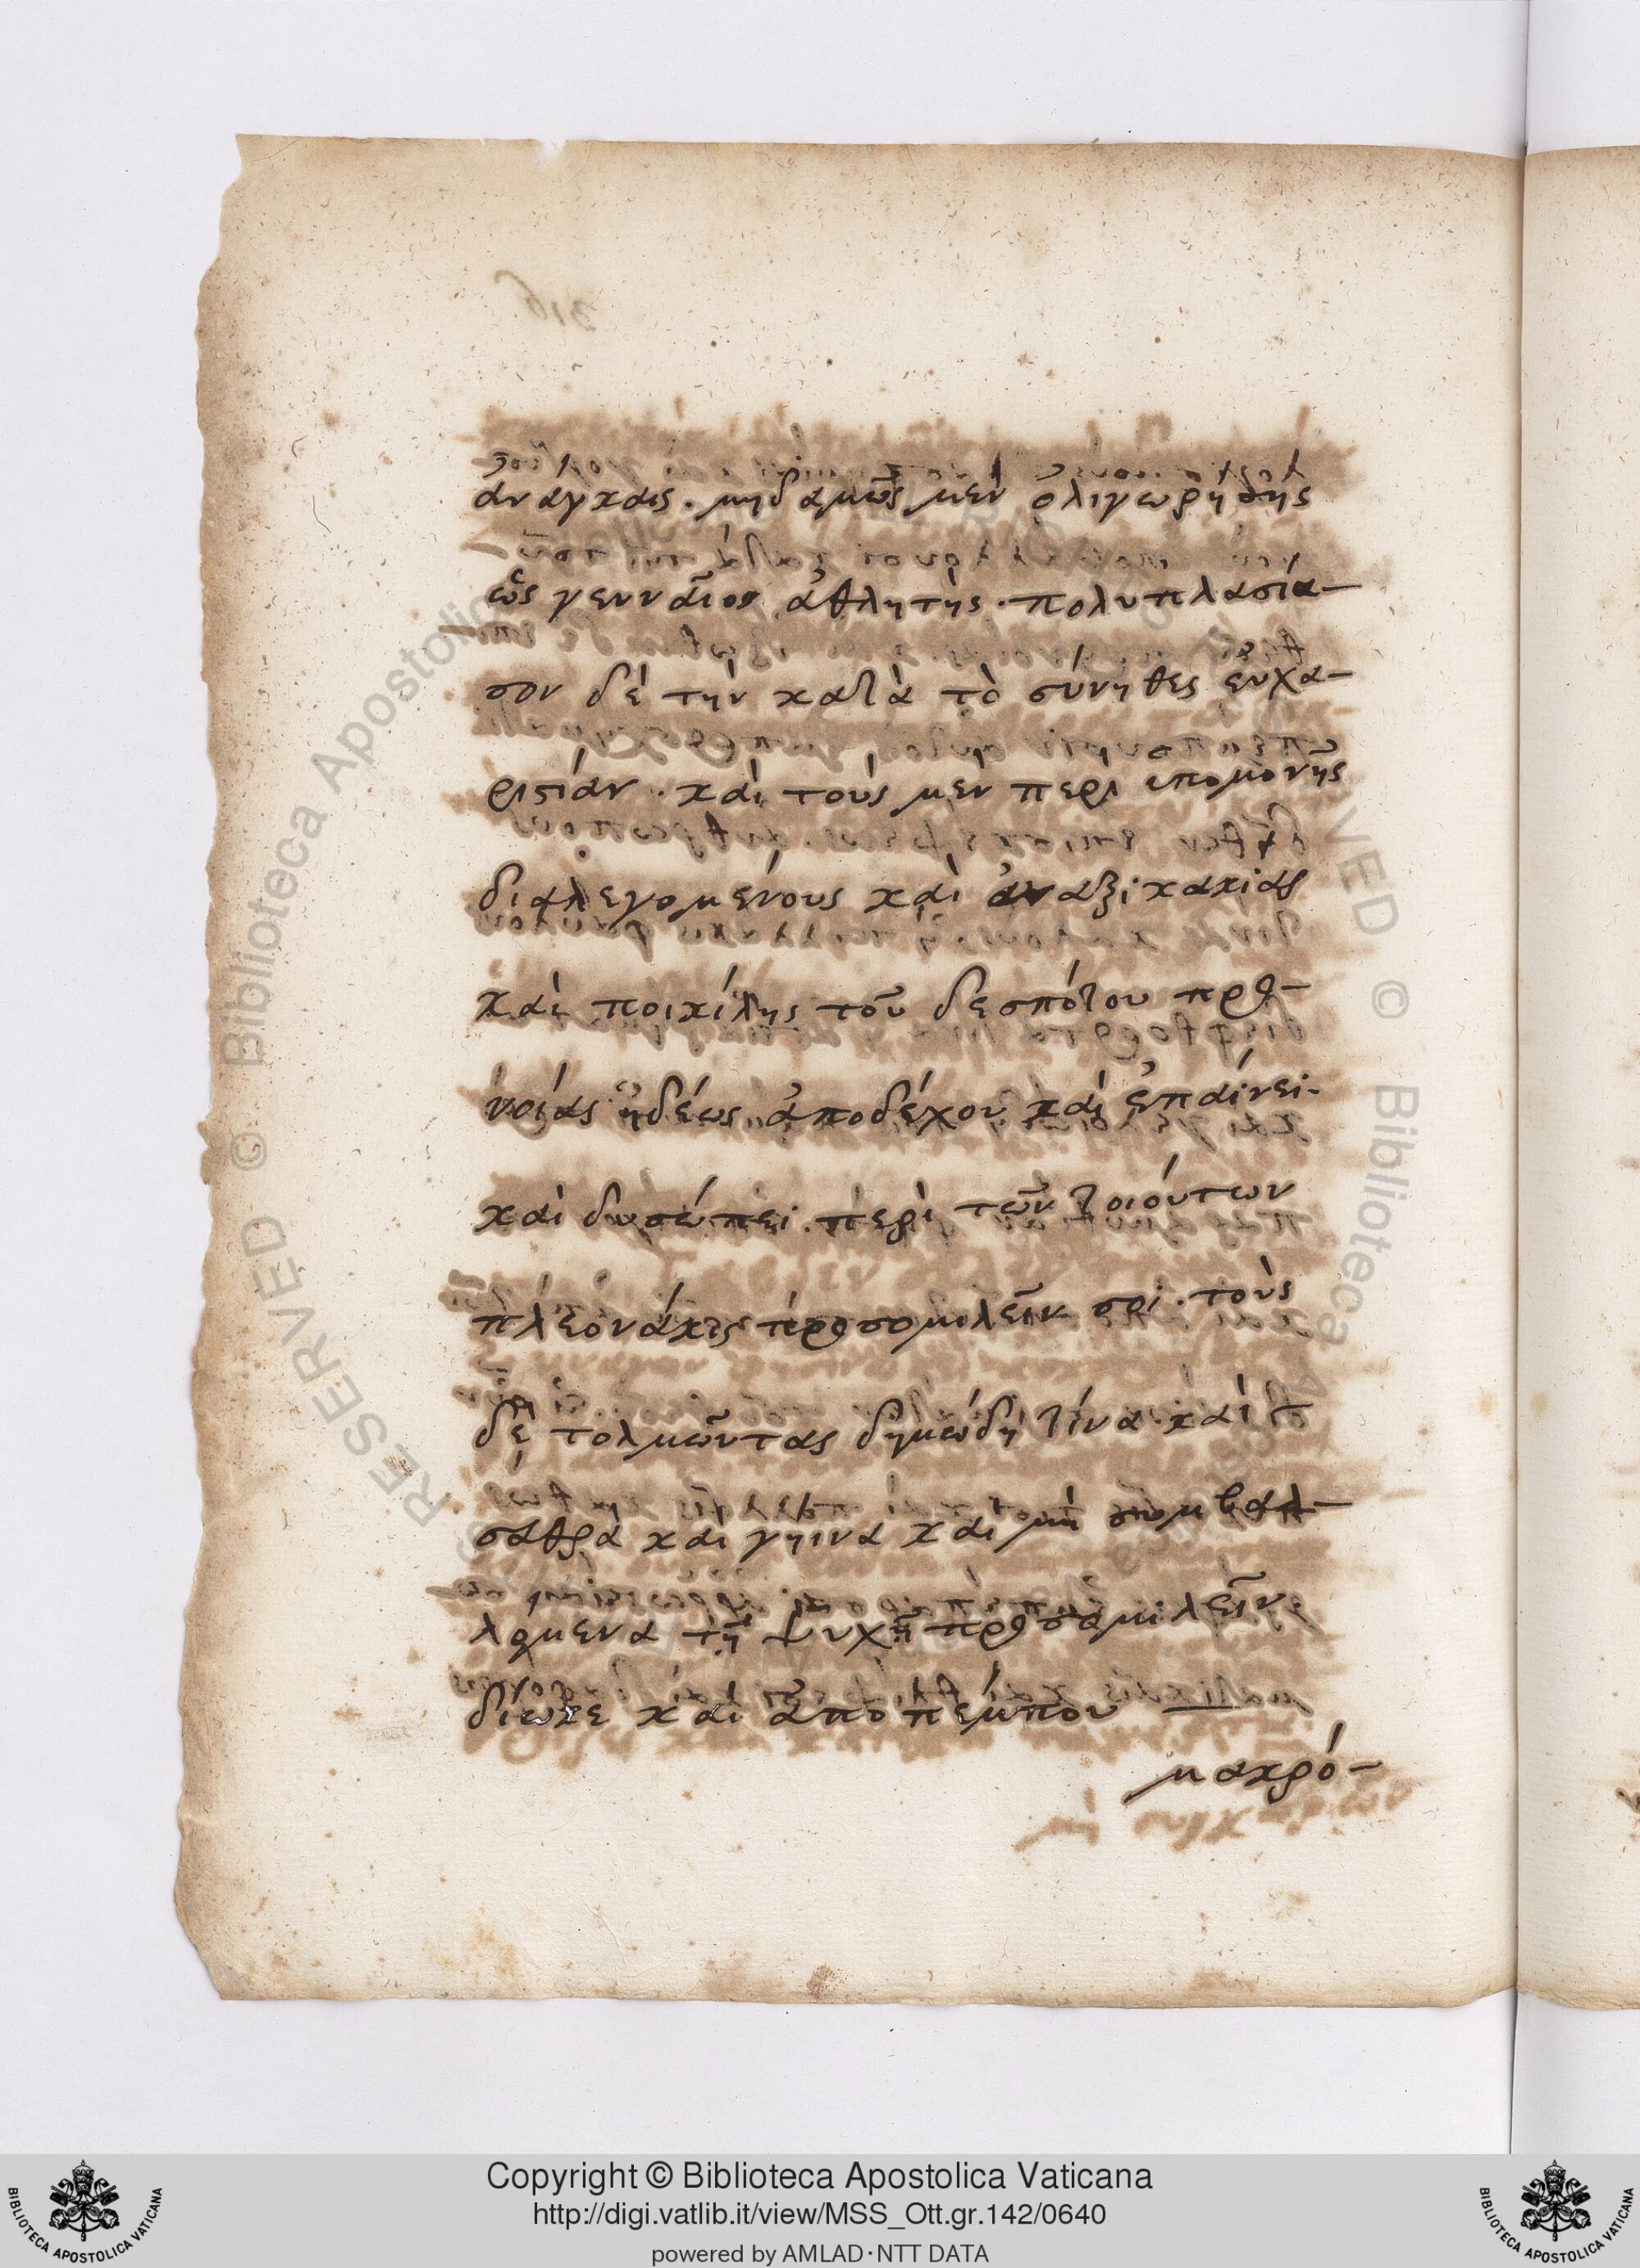 ἀναγκαις. μηδαμῶς μὲν ὀλιγωρήσῃς
ὡς γενναῖος ἀθλητὴς. πολυπλασία-
σον δὲ τὴν κατὰ τὸ σύνηθες εὐχα-
ριστίαν. καὶ τοὺς μὲν περι ὑπομονῆς
διαλεγομένους καὶ ἀναξικακίας
καὶ ποικίλης τοῦ δεσπότου προ-
νοίας ἡδέως ἀποδέχου καὶ ἐπαίνει.
καὶ δυσώπει περὶ τῶν τοιούτων
πλεονάκις προσομιλεῖν σοι. τοὺς
δὲ τολμῶντας δημώδη τίνα καὶ
σαθρὰ καὶ γηινα καὶ μὴ συμβαλ-
λομενα τῇ ψυχῇ προσομιλεῖν
δίωκε καὶ ἀποπέμπου
μακρό-
Copyright © Biblioteca Apostolica Vaticana
http://digi.vatlib.it/view/MSS_Ott.gr.142/0640
powered by AMLAD·NTT DATA
BIBLIOTECA APOSTOLICA VATICANA
BIBLIOTECA APOSTOLICA VATICANA